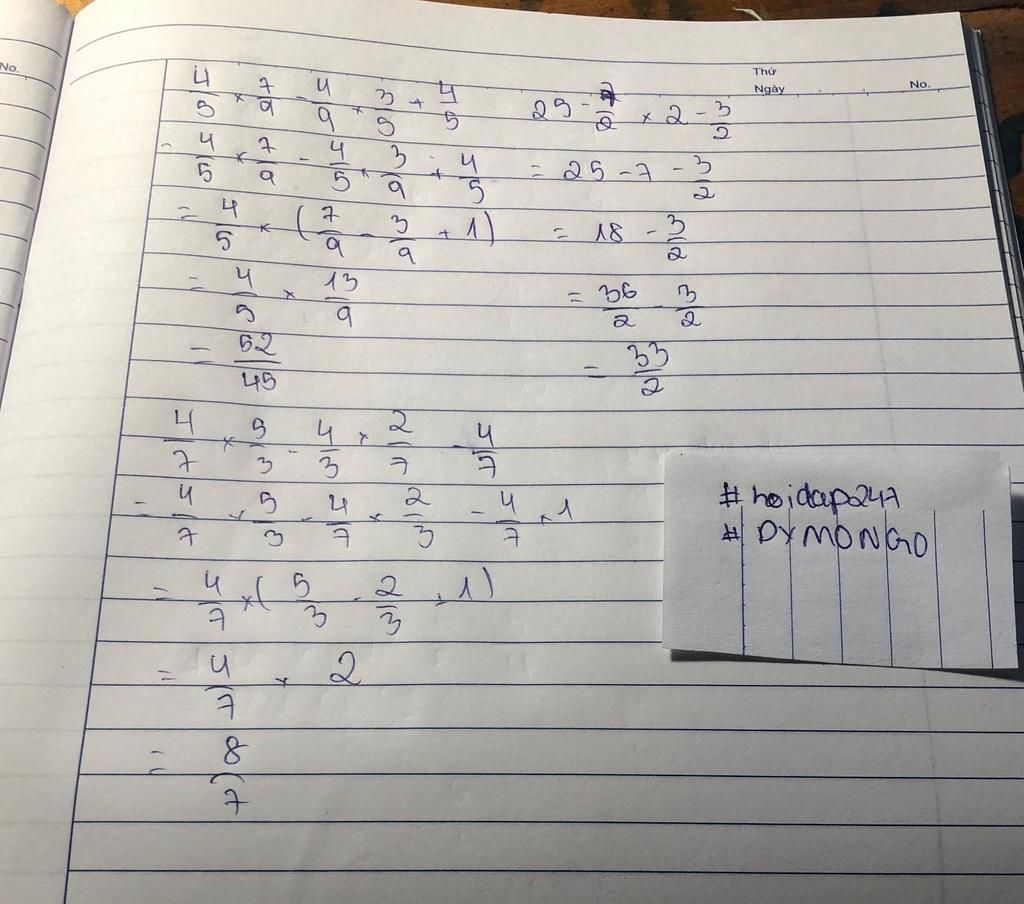 No.
Thứ
Ngày No.
4/5 × 7/9 - 4/9 × 3/5 + 4/5
= 4/5 × 7/9 - 4/5 × 3/9 + 4/5
= 4/5 × (7/9 - 3/9 + 1)
= 4/5 × 13/9
= 52/45
25 - 7/2 × 2 - 3/2
= 25 - 7 - 3/2
= 18 - 3/2
= 36/2 - 3/2
= 33/2
4/7 × 5/3 - 4/3 × 2/7 - 4/7
= 4/7 × 5/3 - 4/7 × 2/3 - 4/7 × 1
= 4/7 × (5/3 - 2/3 + 1)
= 4/7 × 2
= 8/7
#hoidap247
# DYMONGO